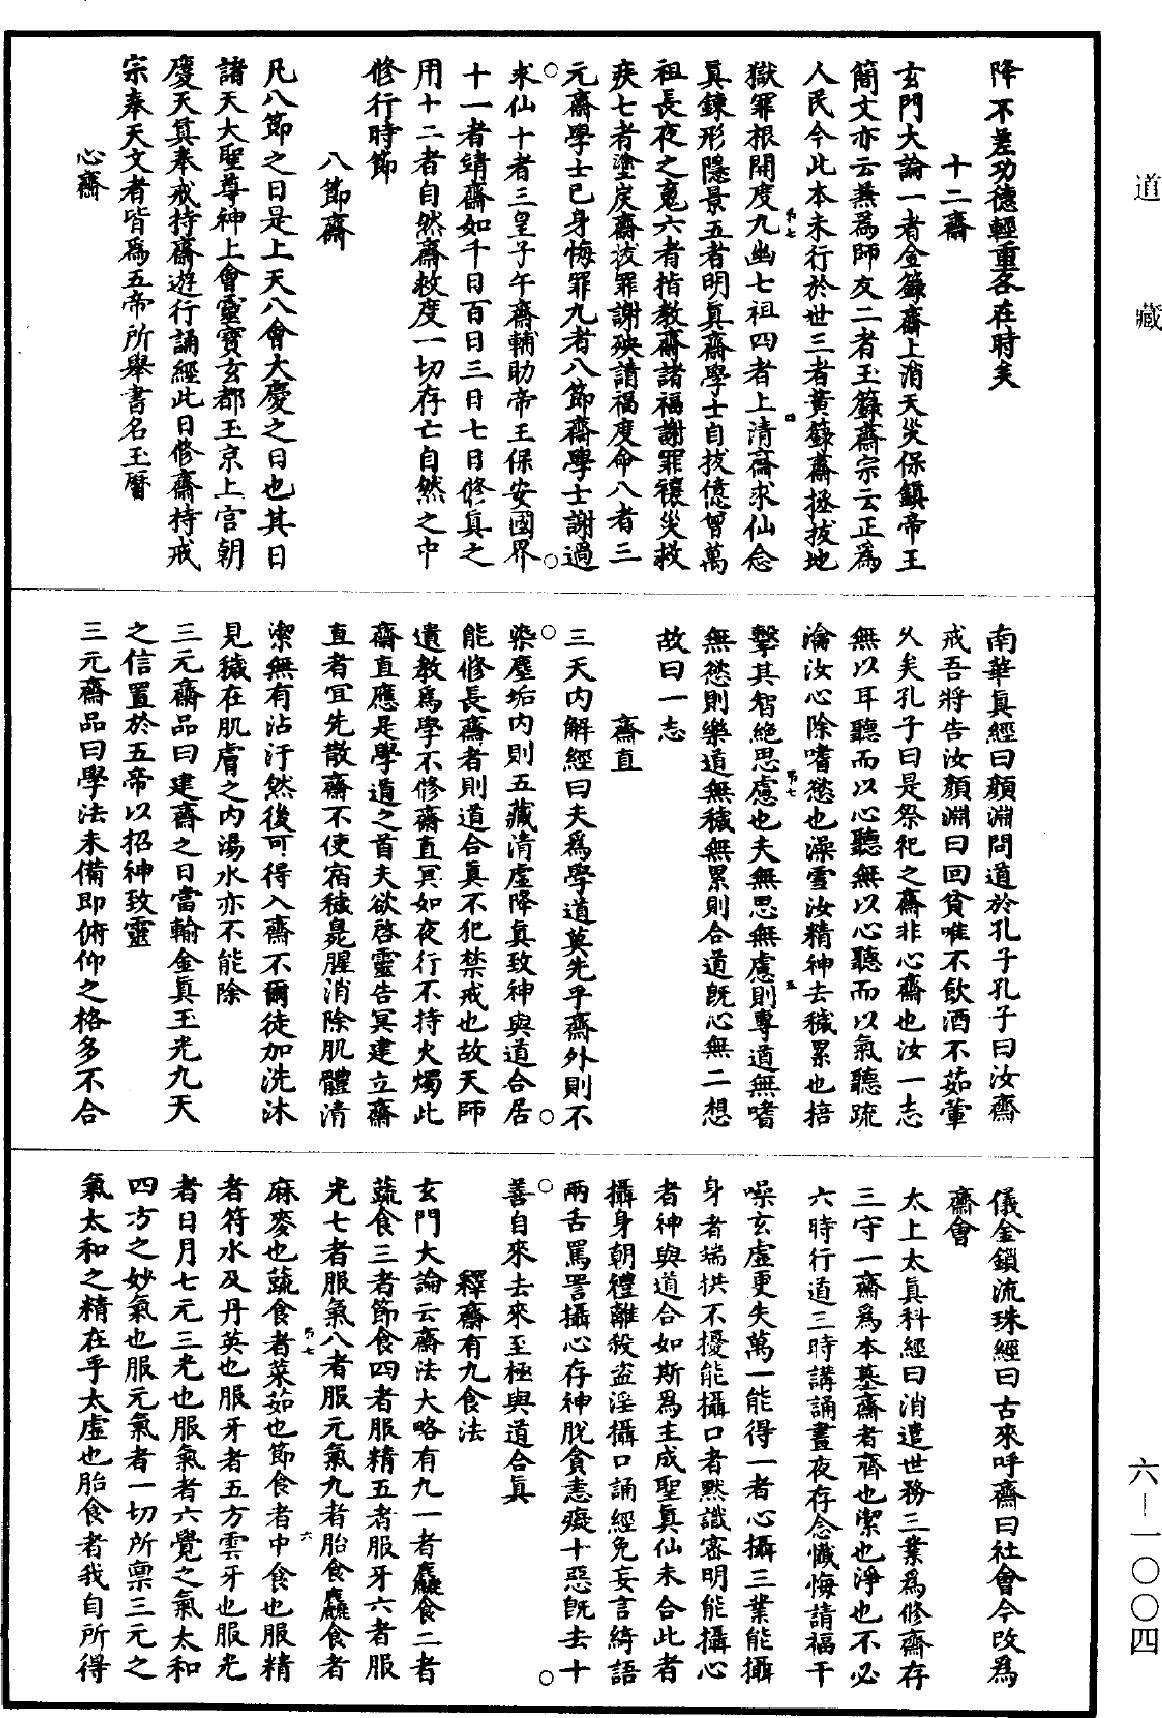 道藏
降不差功德輕重各在時矣
十二齋
玄門大論一者金籙齋上消天災保鎮帝王
簡文亦云兼為師友二者玉籙齋宗云正為
人民今此本未行於世三者黃籙齋拯拔地
獄罪根開度九幽七祖四者上清齋求仙念
真鍊形隱景五者明真齋學士自拔億曾萬
祖長夜之魂六者指教齋諸福謝罪禳災救
疾七者塗炭齋拔罪謝殃請福度命八者三
元齋學士己身悔罪九者八節齋學士謝過
求仙十者三皇子午齋輔助帝王保安國界
十一者靖齋如千日百日三日七日修真之
用十二者自然齋救度一切存亡自然之中
修行時節
八節齋
凡八節之日是上天八會大慶之日也其日
諸天大聖尊神上會靈寶玄都玉京上宮朝
慶天真奉戒持齋遊行誦經此日修齋持戒
宗奉天文者皆為五帝所舉書名玉曆
心齋
南華真經曰顏淵問道於孔子孔子曰汝齋
戒吾將告汝顏淵曰回貧唯不飲酒不茹葷
久矣孔子曰是祭祀之齋非心齋也汝一志
無以耳聽而以心聽無以心聽而以氣聽疏
瀹汝心除嗜慾也澡雪汝精神去穢累也掊
擊其智絕思慮也夫無思無慮則專道無嗜
無慾則樂道無穢無累則合道既心無二想
故曰一志
齋直
三天內解經曰夫為學道莫先乎齋外則不
染塵垢內則五藏清虛降真致神與道合居
能修長齋者則道合真不犯禁戒也故天師
遺教為學不修齋直冥如夜行不持火燭此
齋直應是學道之首夫欲啓靈告冥建立齋
直者宜先散齋不使宿穢臭腥消除肌體清
潔無有沾汙然後可得入齋不爾徒加洗沐
見穢在肌膚之內湯水亦不能除
三元齋品曰建齋之日當輸金真玉光九天
之信置於五帝以招神致靈
三元齋品曰學法未備即俯仰之格多不合
儀金鎖流珠經曰古來呼齋曰社會今改為
齋會
太上太真科經曰消遣世務三業為修齋存
三守一齋為本基齋者齊也潔也淨也不必
六時行道三時講誦晝夜存念懺悔請福干
噪玄虛更失萬一能得一者心攝三業能攝
身者端拱不擾能攝口者默識密明能攝心
者神與道合如斯為主成聖真仙未合此者
攝身朝禮離殺盜淫攝口誦經免妄言綺語
兩舌罵詈攝心存神脫貪恚癡十惡既去十
善自來去來至極與道合真
釋齋有九食法
玄門大論云齋法大略有九一者麤食二者
蔬食三者節食四者服精五者服牙六者服
光七者服氣八者服元氣九者胎食麤食者
麻麥也蔬食者菜茹也節食者中食也服精
者符水及丹英也服牙者五方雲牙也服光
者日月七元三光也服氣者六覺之氣太和
四方之妙氣也服元氣者一切所稟三元之
氣太和之精在乎太虛也胎食者我自所得
六－一〇〇四